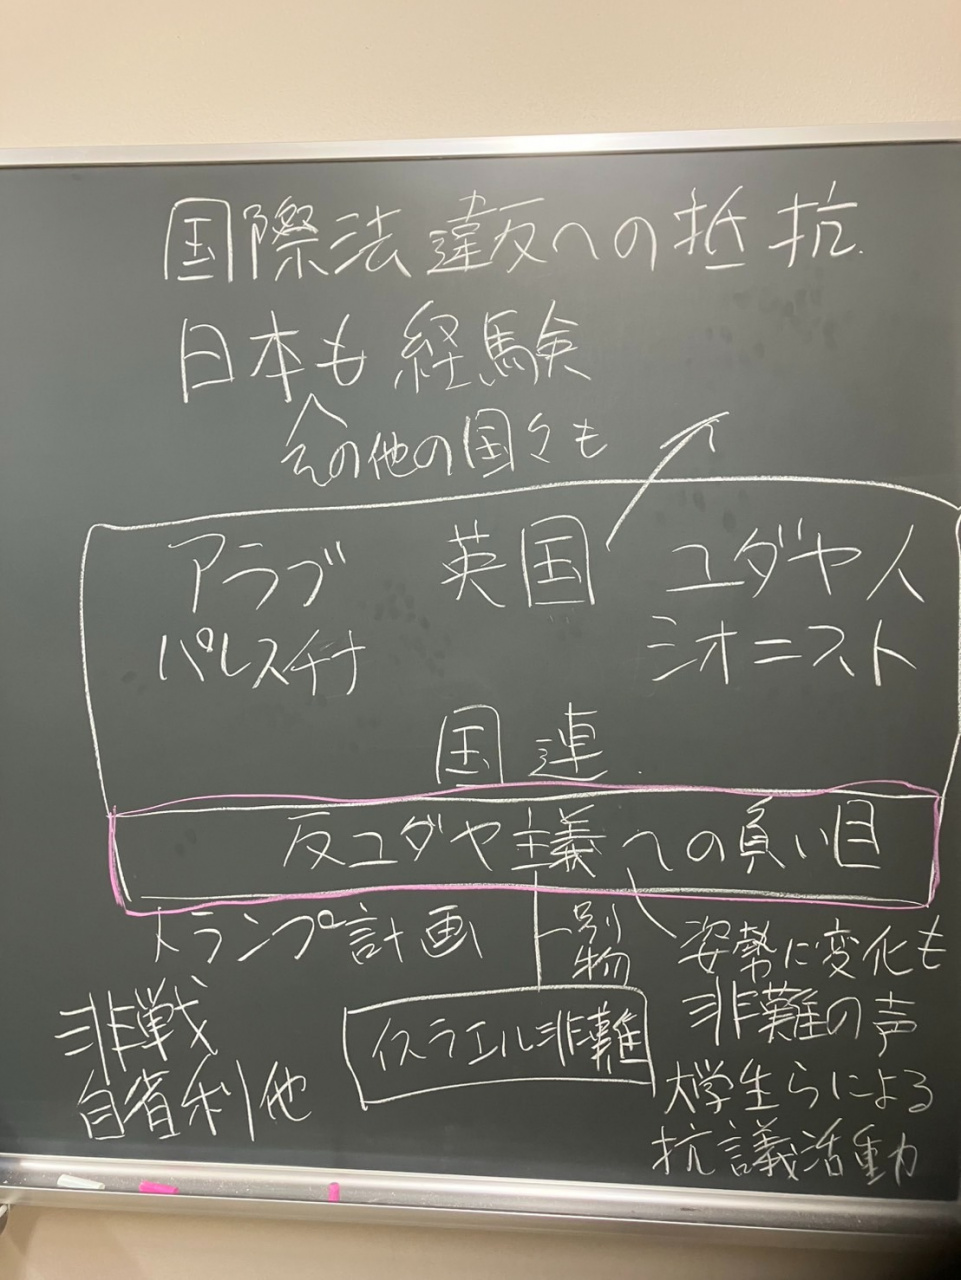 国際法違反への抵抗
日本も経験
その他の国々も
アラブ 英国 ユダヤ人
パレスチナ シオニスト
国連
反ユダヤ主義への負い目
トランプ計画
別物
イスラエル非難
非戦
自省利他
姿勢に変化も
非難の声
大学生らによる
抗議活動